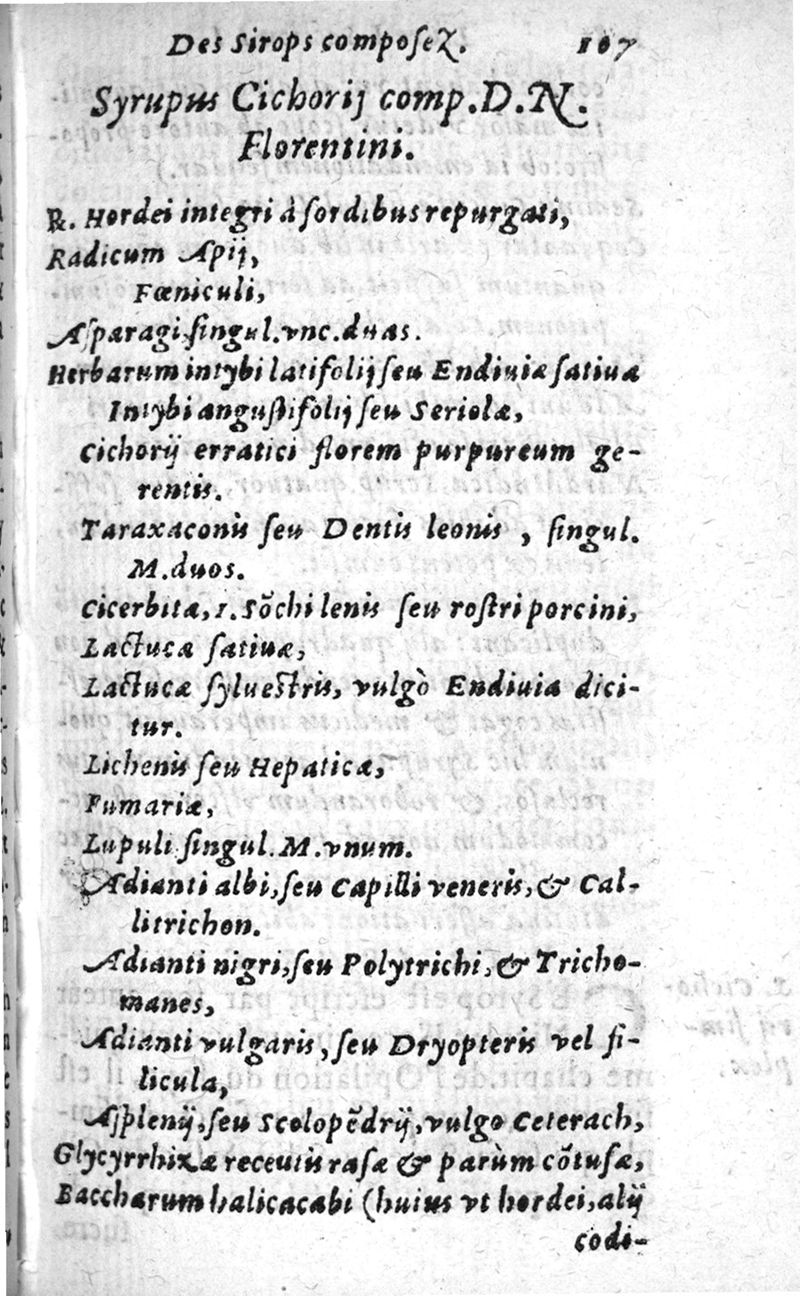 Des Sirops composeZ. 107
Syrupus Cichorij comp. D. N.
Florentini.
℞. Hordei integri à sordibus repurgati,
Radicum Apij,
Fœniculi,
Asparagi singul. vnc. duas.
Herbarum intybi latifolij seu Endiuiæ satiuæ
Intybi angustifolij seu Seriolæ,
Cichorij erratici florem purpureum ge-
rentis.
Taraxaconis seu Dentis leonis, singul.
M. duos.
Cicerbitæ, i. Sõchi lenis seu rostri porcini,
Lactucæ satiuæ,
Lactucæ syluestris, vulgò Endiuia dici-
tur.
Lichenis seu Hepaticæ,
Fumariæ,
Lupuli singul. M. vnum.
Adianti albi, seu Capilli veneris, & Cal-
litrichon.
Adianti nigri, seu Polytrichi, & Tricho-
manes,
Adianti vulgaris, seu Dryopteris vel fi-
licula,
Asplenij, seu Scolopẽdrij, vulgo Ceterach,
Glycyrrhizæ receutis rasæ & parùm cõtusæ,
Baccharum halicacabi (huius vt hordei, alij
codi-